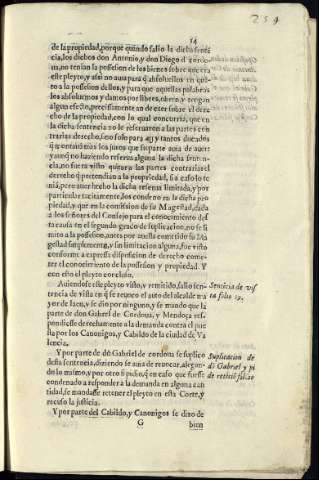 254
14
de la propiedad, porque quando salio la dicha sentē
cia, los dichos don Antonio, y don Diego de cordo
ua, no tenian la possession de los bienes sobre que era
este pleyto, y assi no auia para q̄ absoluellos en quā
to a la possession dellos, y para que aquellas palabras
los absoluemos y damos por libres, obren y tengan
algun efecto, precisamente an de caer sobre el derecho
de la propiedad, con lo qual concurria, que en
la dicha sentencia no se reseruaron a las partes con
trarias derecho, sino solo para
q̄ contra mis los juros que su parte auia de auer
ya un q̄ no haziendo reserua alguna la dicha senten
cia, no fuera visto quitara las partes contrarias el
derecho q̄ pretendian a la propiedad, si a caso lo te
nia, pero auer hecho la dicha reserua limitada, y por
particular tacitamente, los condeno en la dicha pro
piedad, y que en la comission de su Magestad, dada
a los señores del Consejo para el conocimiento des
ta causa en el segundo grado de suplicacion, no se li
mito a la possession, antes por auerla cometido su Ma
gestad simplemente, y sin limitacion alguna, fue visto
conforme a expressa disposicion de derecho come-
ter el conocimiento de la possession y propiedad. Y
con esto el pleyto concluso.
Auiendose este pleyto visto, y remitido, salio sen-
tencia de vista en q̄ se reuoco el auto del alcalde ma
yor de Iaen, y se dio por ninguno, y se mando que la
parte de don Gabriel de Cordoua, y Mendoça res-
pondiesse derechamente a la demanda contra el pues
ta por los Canonigos, y Cabildo de la ciudad de Va
lencia.
Sentēcia de vis
ta folio 19.
Y por parte de dō Gabriel de cordoua se suplico
desta sentencia, diziendo se auia de reuocar, alegan-
do lo mismo, y por otro si pidio, q̄ en caso que fuesse
condenado a responder a la demanda en alguna can
tidad, se mandasse retener el pleyto en esta Corte, y
recuso la justicia.
Suplicacion de
dō Gabriel y pi
de retēciō
Y por parte del Cabildo, y Canonigos se dixo de
G
bien